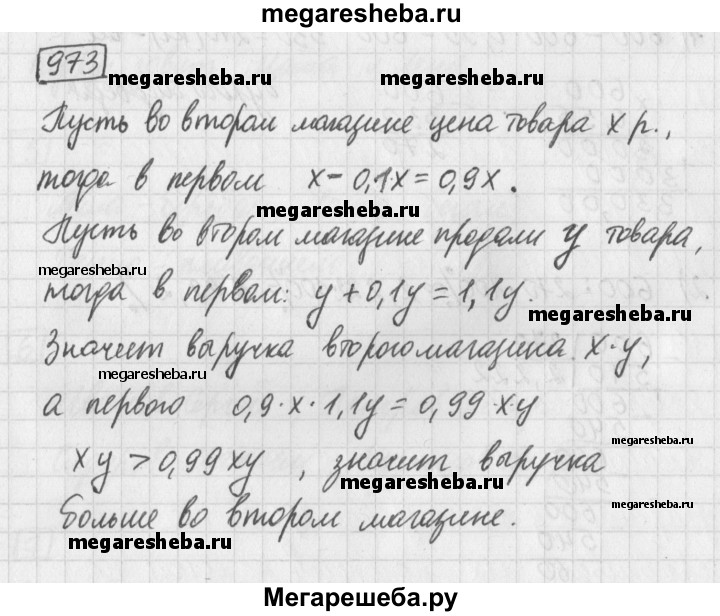 megaresheba.ru
973
megaresheba.ru megaresheba.ru
Пусть во втором магазине цена товара x р.,
тогда в первом x – 0,1x = 0,9x.
megaresheba.ru
Пусть во втором магазине продали y товара,
megaresheba.ru
тогда в первом: y + 0,1y = 1,1y.
megaresheba.ru
Значит выручка второго магазина x · y,
megaresheba.ru
а первого 0,9 · x · 1,1y = 0,99 · xy
megaresheba.ru
xy > 0,99xy , значит выручка
megaresheba.ru
больше во втором магазине.
megaresheba.ru
megaresheba.ru
Мегарешеба.ру